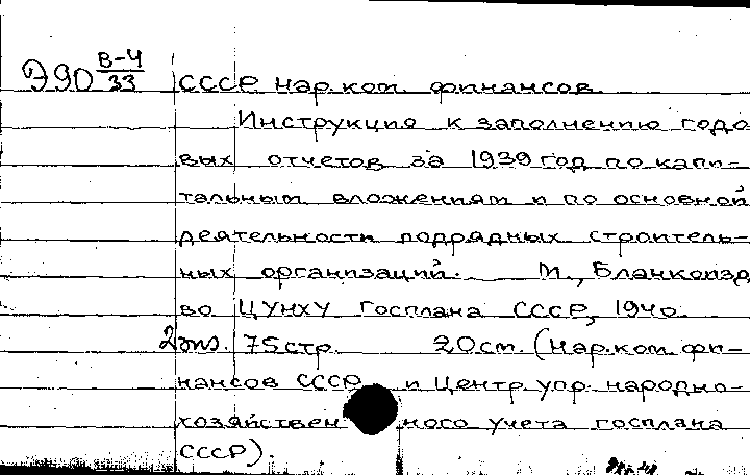 Э90 В-4/33 СССР Нар.ком. финансов.
Инструкция к заполнению годо
вых отчетов за 1939 год по капи-
тальным вложениям и по основной
деятельности подрядных строитель-
ных организаций. М., Бланкоизд
во ЦУНХУ Госплана СССР, 1940.
2 экз. 75 стр. 20 см. (Нар.ком. фи-
нансов СССР и Центр. упр. народно-
хозяйственного учета Госплана
СССР).